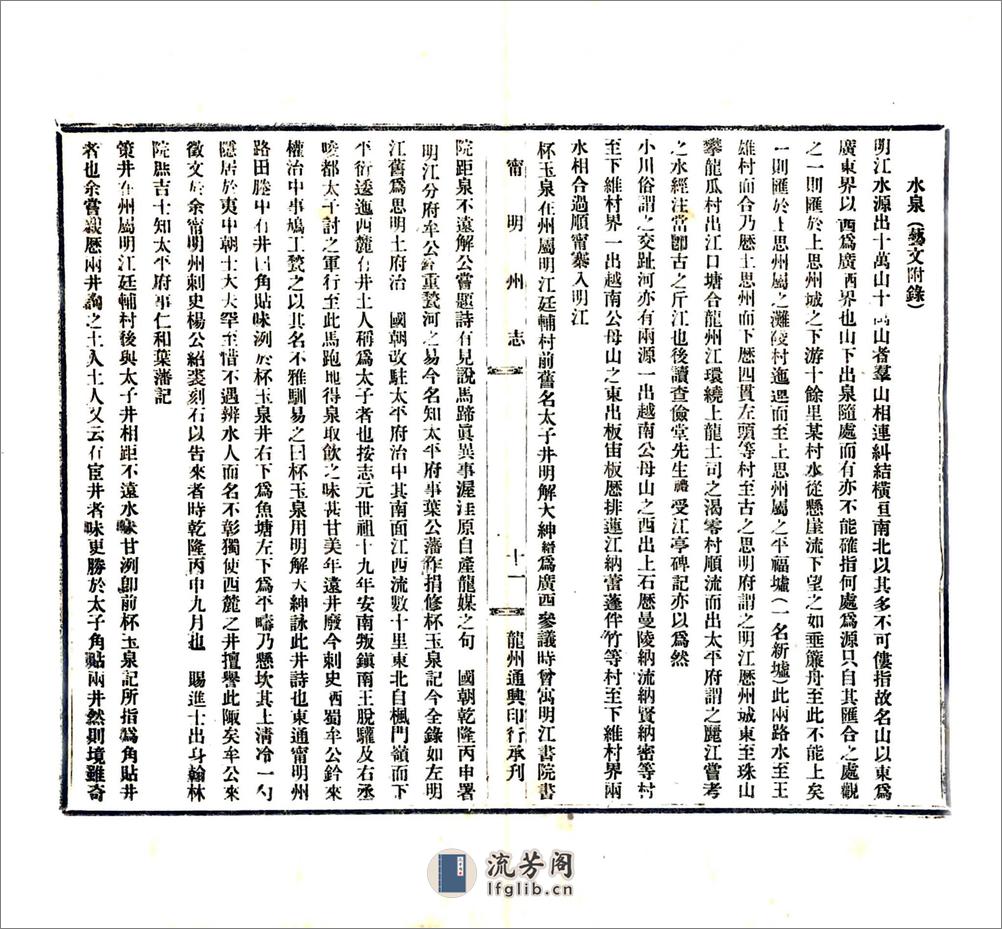 水泉(藝文附錄)
明江水源出十萬山十萬山者羣山相連糾結橫亘南北以其多不可僂指故名山以東爲
廣東界以西爲廣西界也山下出泉隨處而有亦不能確指何處爲源只自其匯合之處觀
之一則匯於上思州城之下游十餘里某村水從懸崖流下望之如垂簾舟至此不能上矣
一則匯於上思州屬之灘陵村迤邐而至上思州屬之平福墟(一名新墟)此兩路水至王
雄村而合乃歷土思州而下歷四貫左頭等村至古之思明府謂之明江歷州城東至珠山
攀龍瓜村出江口塘合龍州江環繞上龍土司之渴零村順流而出太平府謂之麗江嘗考
之水經注當卽古之斤江也後讀查儉堂先生禮受江亭碑記亦以爲然
小川俗謂之交趾河亦有兩源一出越南公母山之西出上石歷曼陵納流納賢納密等村
至下維村界一出越南公母山之東出板宙板歷排蓮江納蕾蓬伴竹等村至下維村界兩
水相合過順甯寨入明江
杯玉泉在州屬明江廷輔村前舊名太子井明解大紳縉爲廣西參議時曾寓明江書院書
甯明州志
十一
龍州通興印行承刋
院距泉不遠解公嘗題詩有見說馬蹄眞異事渥洼原自產龍媒之句 國朝乾隆丙申署
明江分府牟公鈐重甃河之易今名知太平府事葉公藩作捐修杯玉泉記今全錄如左明
江舊爲思明土府治 國朝改駐太平府治中其南面江西流數十里東北自楓門嶺而下
平衍逶迤西麓有井土人稱爲太子者也按志元世祖十九年安南叛鎮南王脫驩及右丞
唆都太子討之軍行至此馬跑地得泉取飲之味甚甘美年遠井廢今刺史西蜀牟公鈐來
權治中事鳩工甃之以其名不雅馴易之曰杯玉泉用明解大紳詠此井詩也東通甯明州
路田塍中有井曰角貼味洌於杯玉泉井右下爲魚塘左下爲平疇乃懸坎其上清冷一勺
隱居於夷中朝士大夫罕至惜不遇辨水人而名不彰獨使西麓之井擅譽此陬矣牟公來
徵文於余甯明州刺史楊公紹裘刻石以告來者時乾隆丙申九月也 賜進士出身翰林
院庶吉士知太平府事仁和葉藩記
策井在州屬明江廷輔村後與太子井相距不遠水味甘洌卽前杯玉泉記所指爲角貼井
者也余嘗親歷兩井詢之土人土人又云有宦井者味更勝於太子角貼兩井然則境雖奇
流芳阁
lfglib.cn